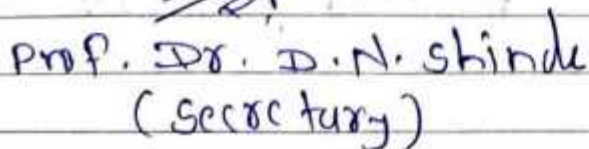 Prof. Dr. D. N. Shinde
(Secretary)